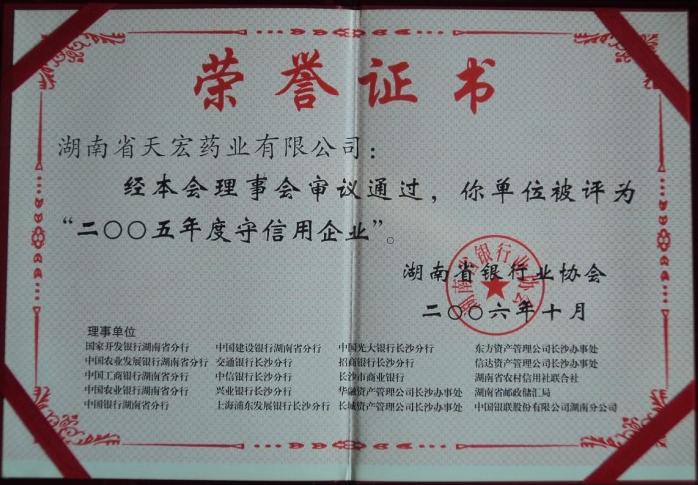 荣誉证书
湖南省天宏药业有限公司：
经本会理事会审议通过，你单位被评为
“二〇〇五年度守信用企业”。
湖南省银行业协会
二〇〇六年十月
湖南省银行业协会
理事单位
国家开发银行湖南省分行 中国建设银行湖南省分行 中国光大银行长沙分行 东方资产管理公司长沙办事处
中国农业发展银行湖南省分行 交通银行长沙分行 招商银行长沙分行 信达资产管理公司长沙办事处
中国工商银行湖南省分行 中信银行长沙分行 长沙市商业银行 湖南省农村信用社联合社
中国农业银行湖南省分行 兴业银行长沙分行 华融资产管理公司长沙办事处 湖南省邮政储汇局
中国银行湖南省分行 上海浦东发展银行长沙分行 长城资产管理公司长沙办事处 中国银联股份有限公司湖南分公司